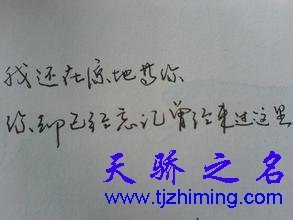 我还在原地等你
你却已经忘记曾经来过这里
天骄之名
www.tjzhiming.com